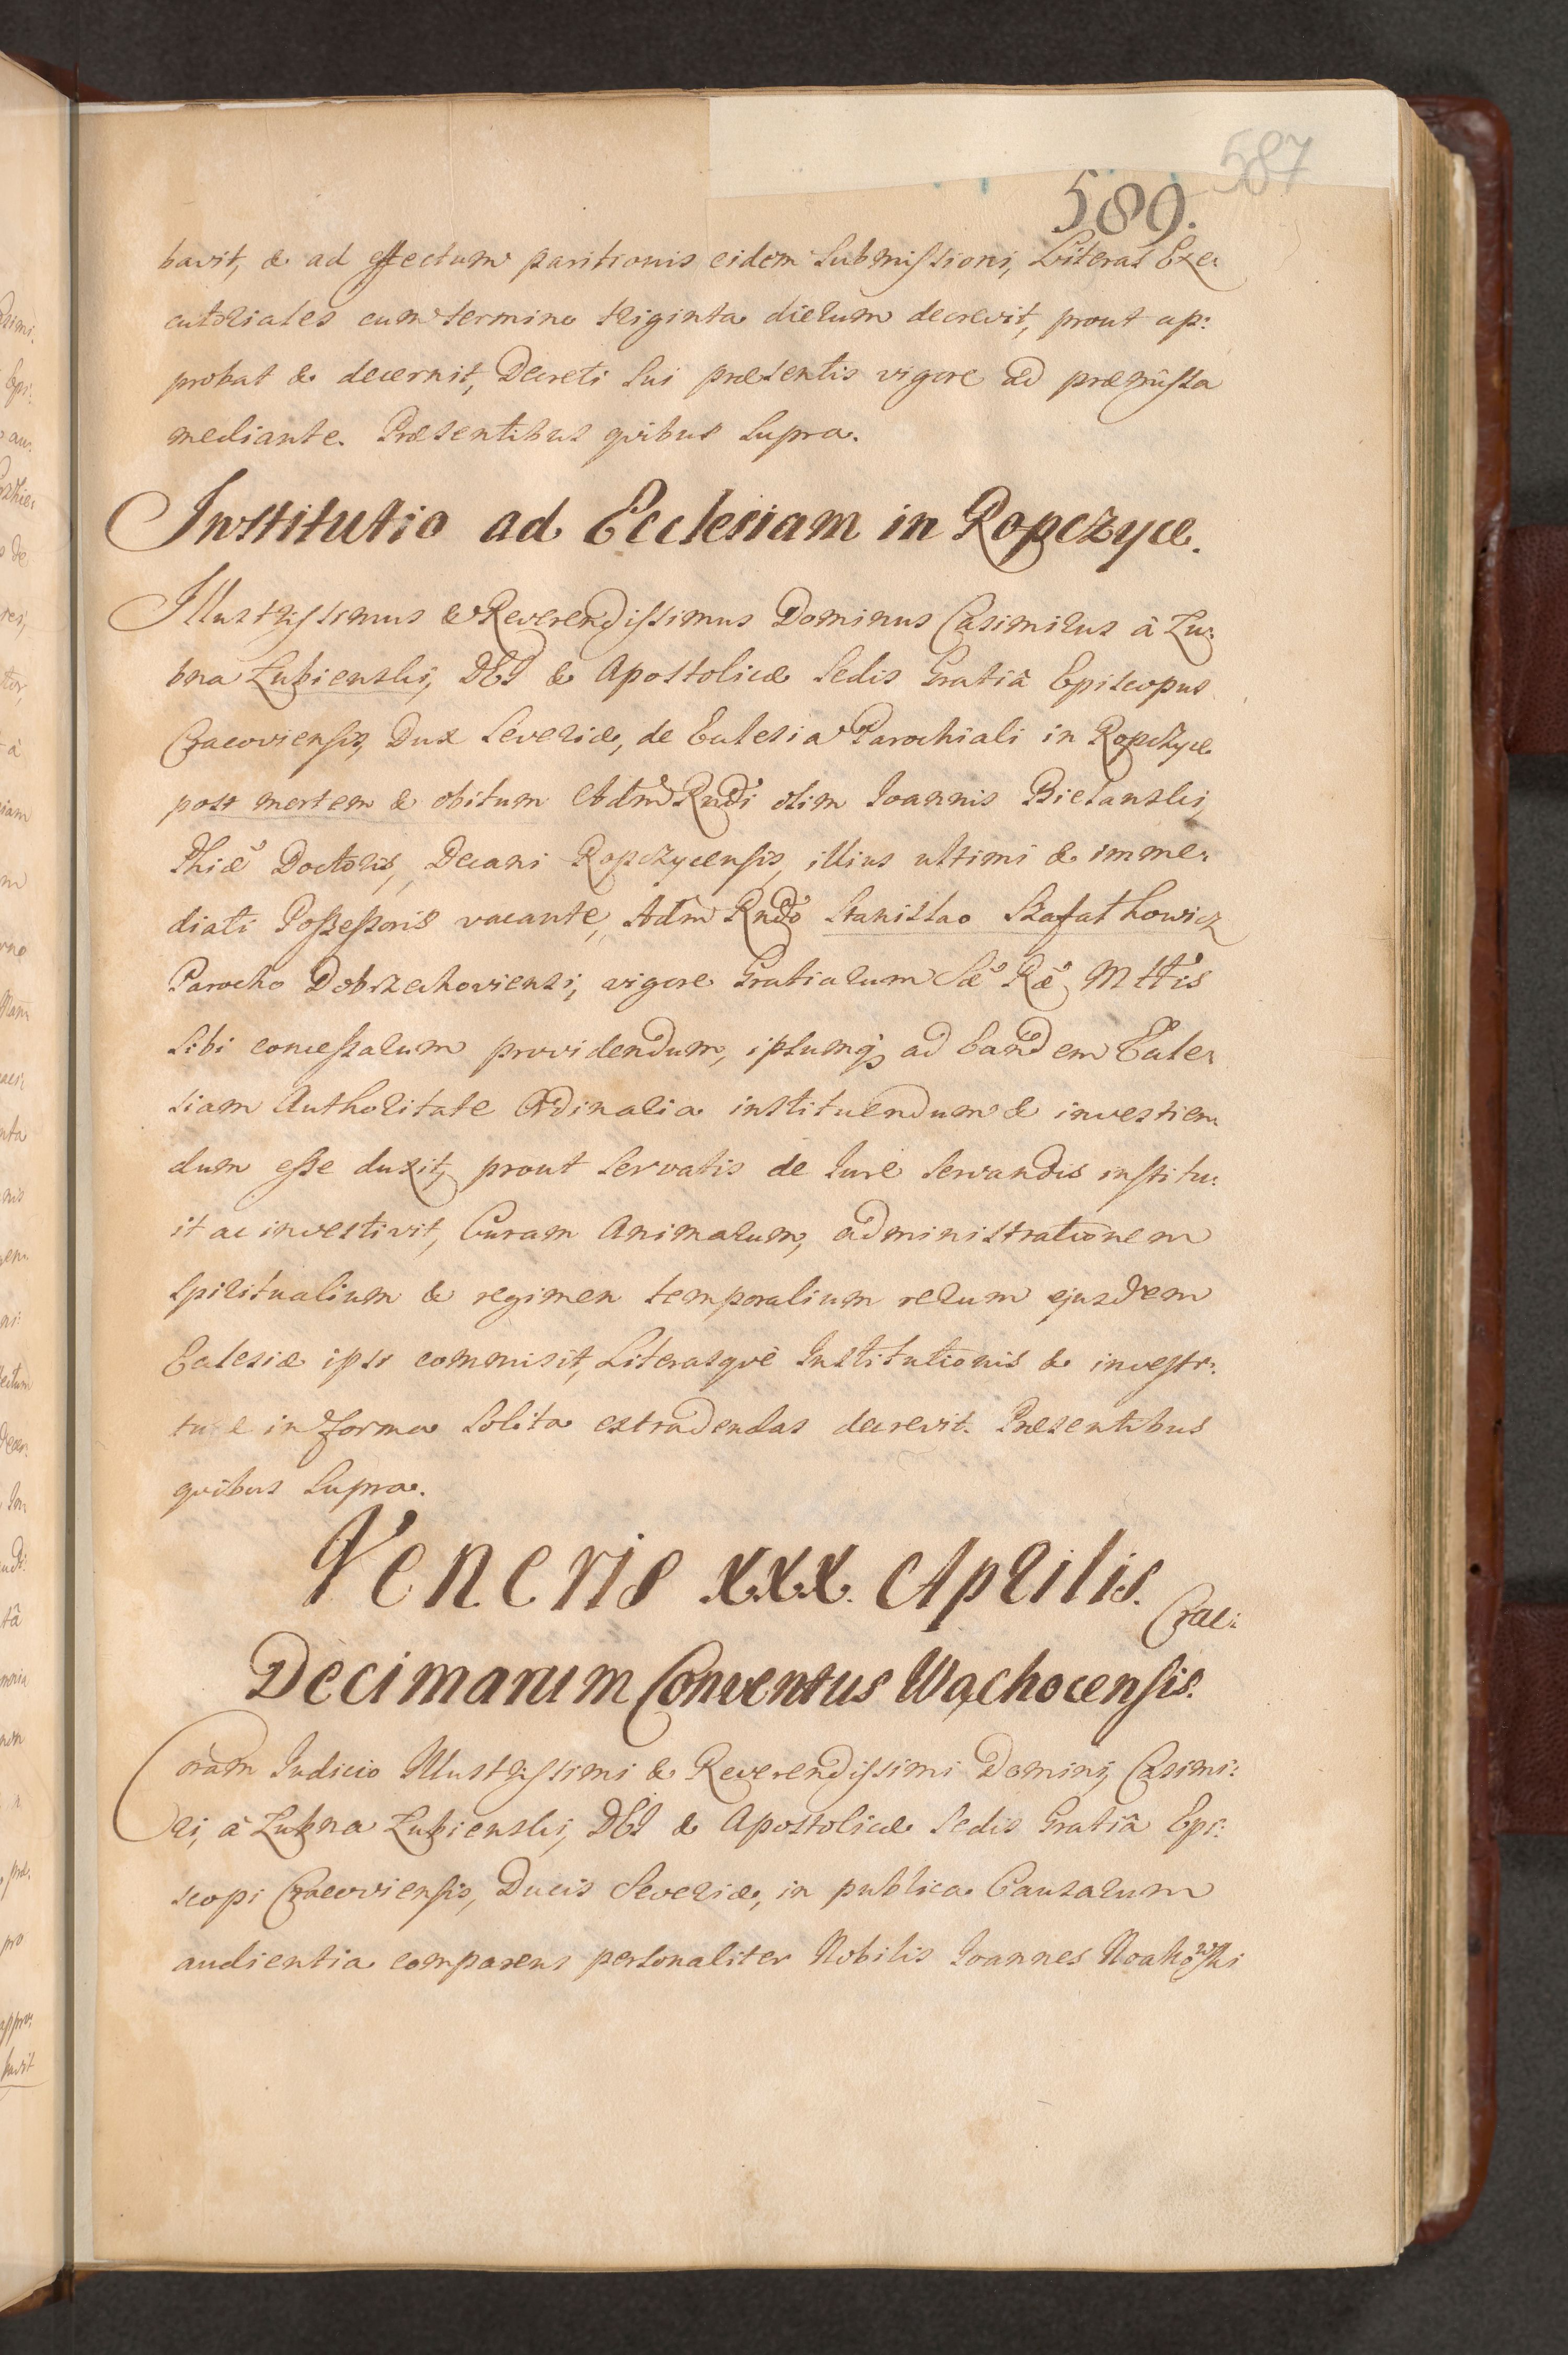 587
589.
bavit, & ad effectum paritionis eidem Submissioni, Literas Exe:
cutoriales cum termino triginta dierum decrevit, prout ap:
probat & decernit, Decreti sui præsentis vigore ad præmissa
mediante. Præsentibus quibus supra.
Institutio ad Ecclesiam in Ropczyce.
Illustrissimus & Reverendissimus Dominus Casimirus à Łu:
bna Łubienski, DEI & Apostolicæ Sedis Gratiâ Episcopus
Cracoviensis, Dux Severiæ, de Ecclesia Parochiali in Ropczyce
post mortem & obitum Adm Rndi olim Joannis Bielanski,
Phiæ Doctoris, Decani Ropczycensis, illius ultimi & imme:
diati Possessoris vacante, Adm Rndo Stanislao Szafathowicz
Parocho Dobrzechoviensi, vigore Gratiarum Sæ Ræ Mttis
sibi concessarum providendum, ipsumq; ad Eandem Eccle:
siam Authoritate Ordinaria instituendum & investien:
dum esse duxit, prout servatis de Jure servandis institu:
it ac investivit, Curam Animarum, administrationem
spiritualium & regimen temporalium rerum ejusdem
Ecclesiæ ipsi commisit, Literasquè Institutionis & investi:
turæ in forma solita extradendas decrevit. Præsentibus
quibus supra.
Veneris xxx. Aprilis.
Crac:
Decimarum Conventus Wąchocensis.
Coram Judicio Illustrissimi & Reverendissimi Domini, Casimi:
ri, à Łubna Łubienski, DEI & Apostolicæ Sedis Gratiâ Epi:
scopi Cracoviensis, Ducis Severiæ, in publica Causarum
audientia comparens personaliter Nobilis Joannes Noakowski